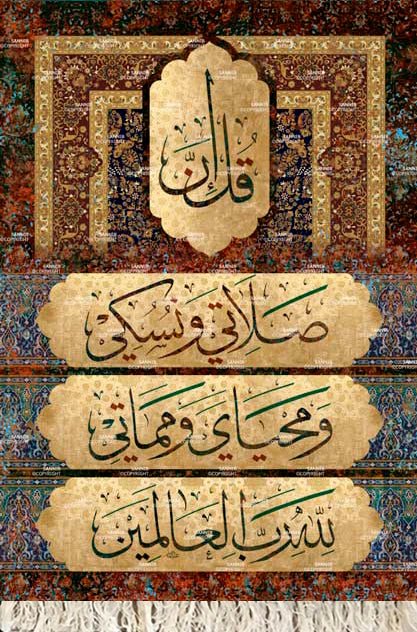 قُلْ إِنَّ
صَلَاتِي وَنُسُكِي
وَمَحْيَايَ وَمَمَاتِي
لِلَّهِ رَبِّ الْعَالَمِينَ
SANNER
©COPYRIGHT